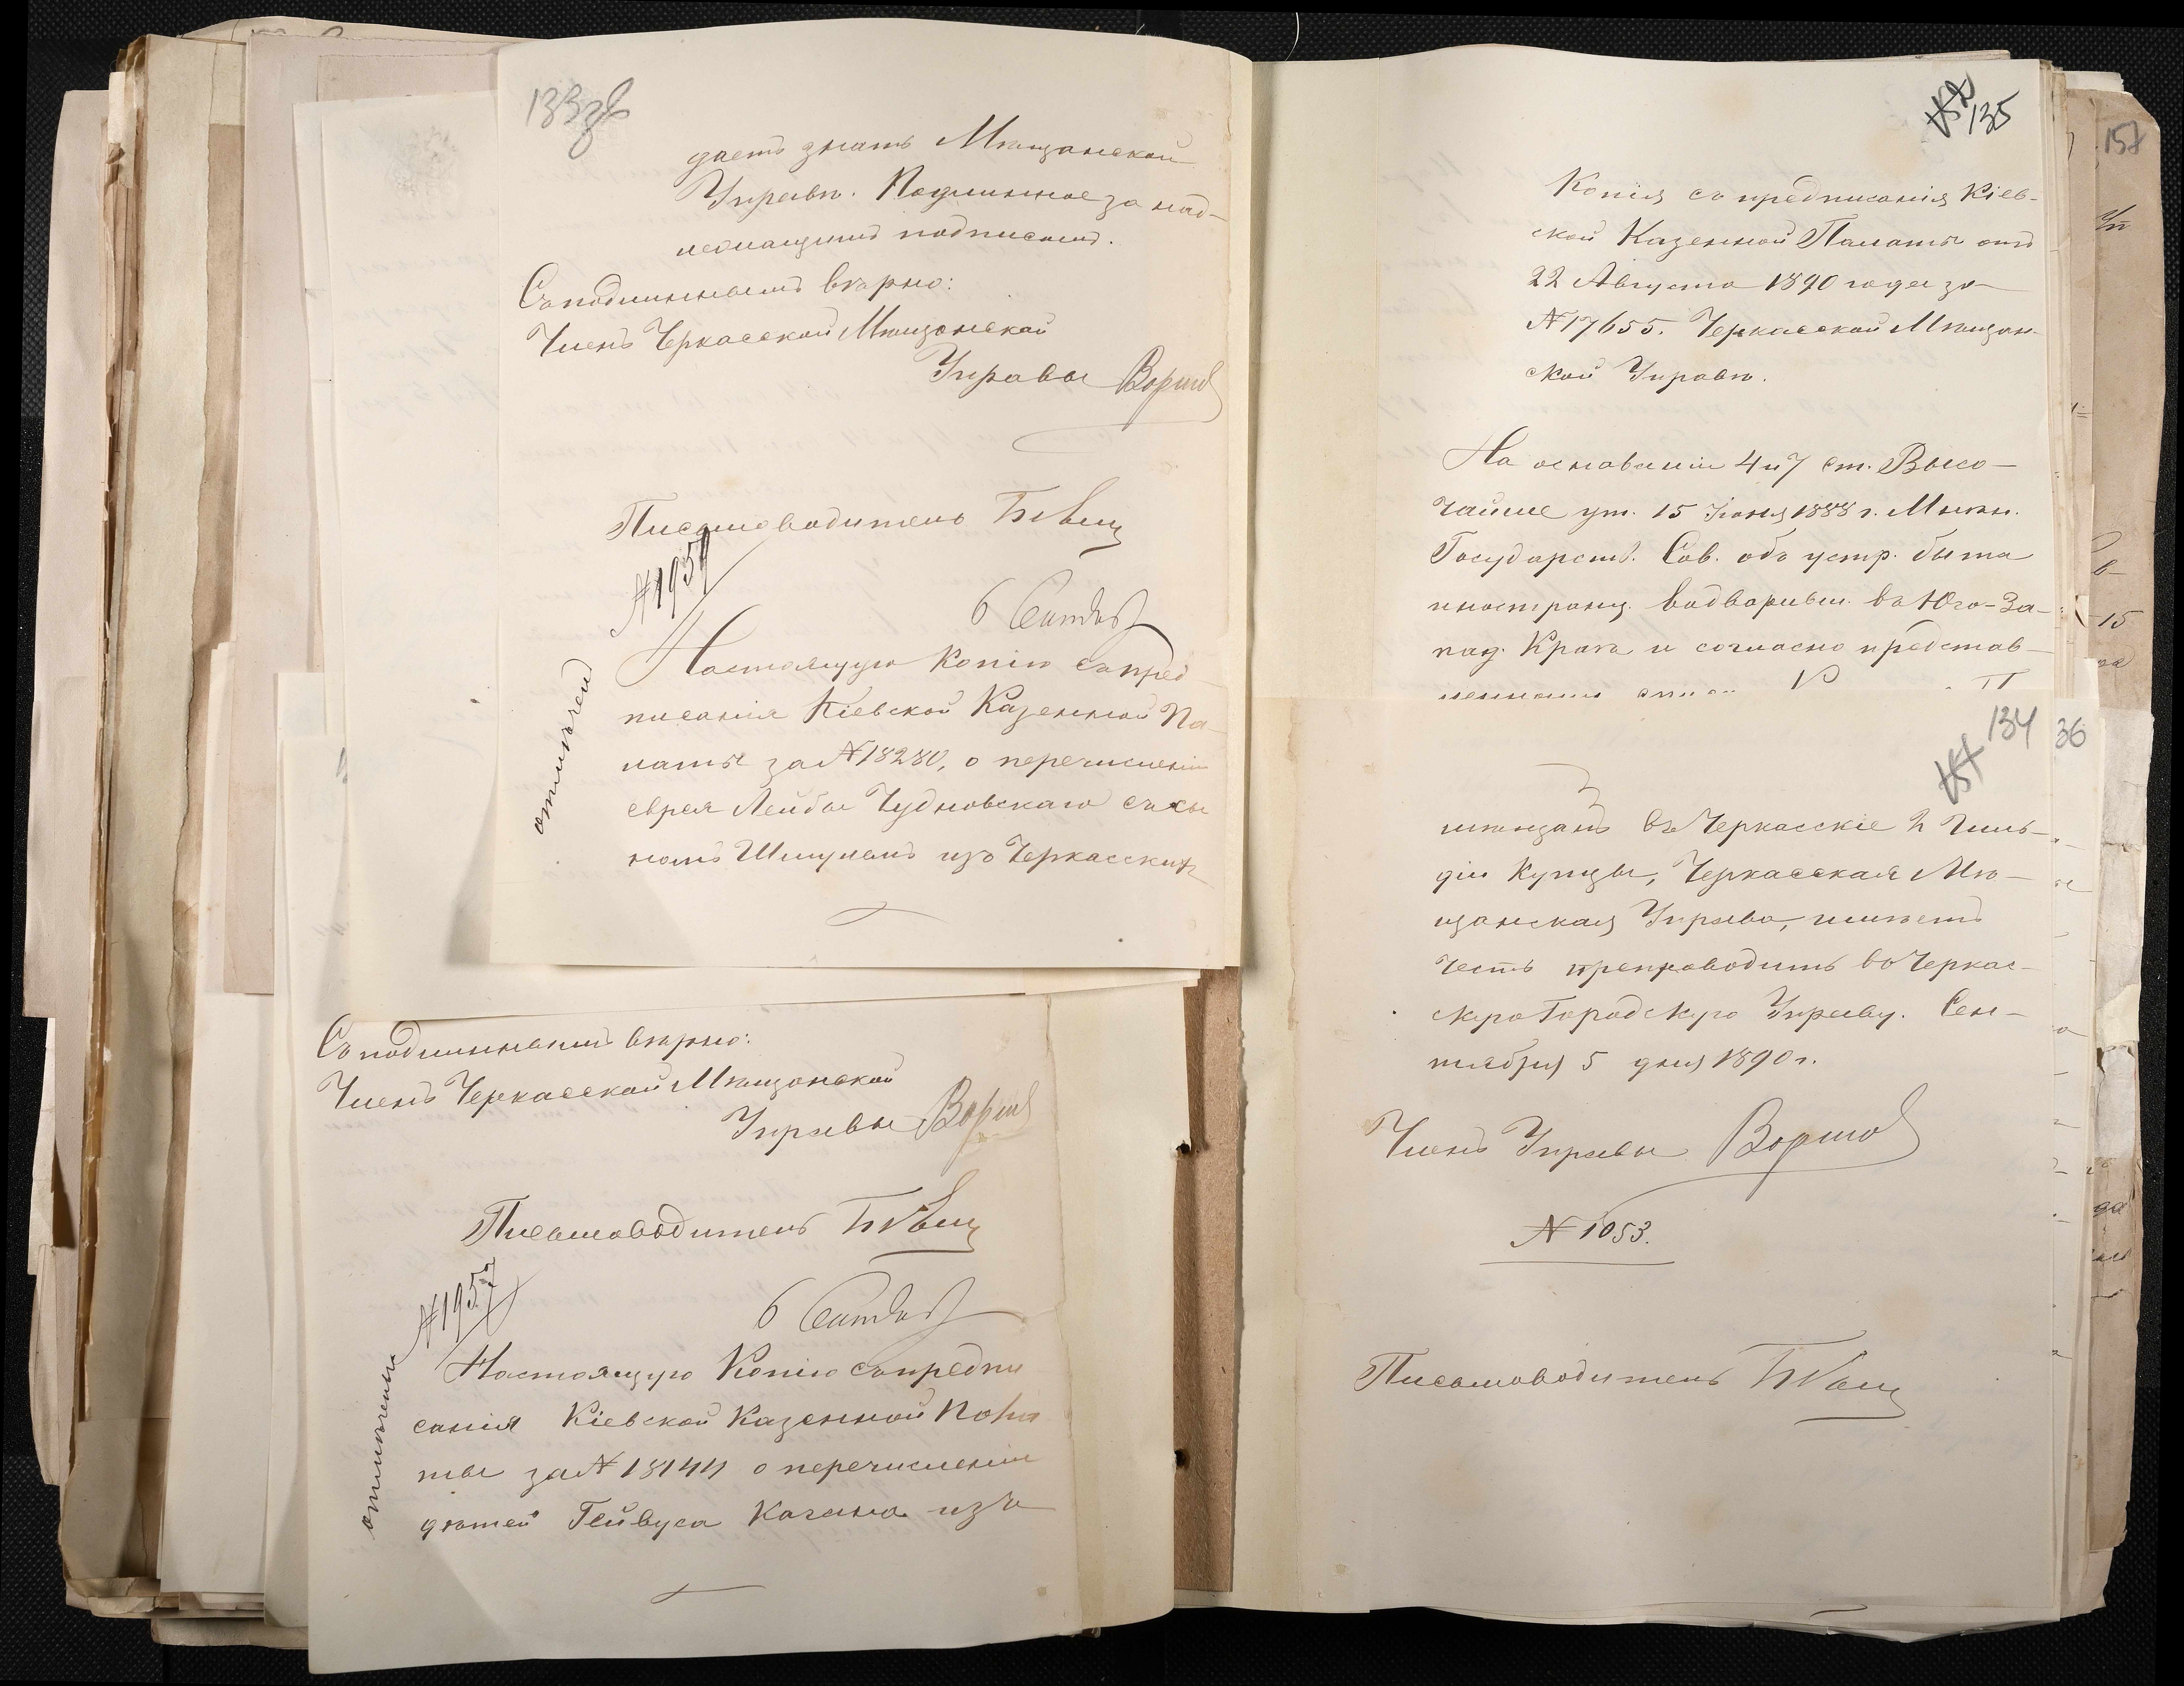 133 зв
даетъ знать Мѣщанской
Управѣ. Подлинное за над-
лежащимъ подписомъ.
Съ подлиннымъ вѣрно:
Членъ Черкасской Мѣщанской
Управы
Письмоводитель
6 Сентяб
отмѣчен
Настоящую копію съ пред-
писанія Кіевской Казенной Па-
латы за № 18280, о перечисленіи
еврея Лейбы Чудновскаго съ сы
номъ Шмулемъ изъ Черкасскихъ
Съ подлиннымъ вѣрно:
Членъ Черкасской Мѣщанской
Управы
Письмоводитель
№ 1957
6 Сентяб
отмѣчены
Настоящую Копію съ предпи
санія Кіевской Казенной Пала
ты за № 18144 о перечисленіи
дѣтей Гейвуса Кагана изъ
135
Копія съ предписанія Кіев-
ской Казенной Палаты отъ
22 Августа 1890 года за
№ 17655. Черкасской Мѣщан-
ской Управѣ.
На основаніи 4 и 7 ст. Высо-
чайше ут. 15 Іюня 1888 г. Мнѣн.
Государств. Сов. объ устр. быта
иностранц. водворивш. въ Юго-За-
пад. Краѣ и согласно представ-
134
36
мѣщанъ въ Черкасскіе 2 Гиль-
діи Купцы, Черкасская Мѣ-
щанская Управа, имѣетъ
честь препроводить въ Черкас-
скую Городскую Управу. Сен-
тября 5 дня 1890 г.
Членъ Управы
№ 1053.
Письмоводитель
157
15